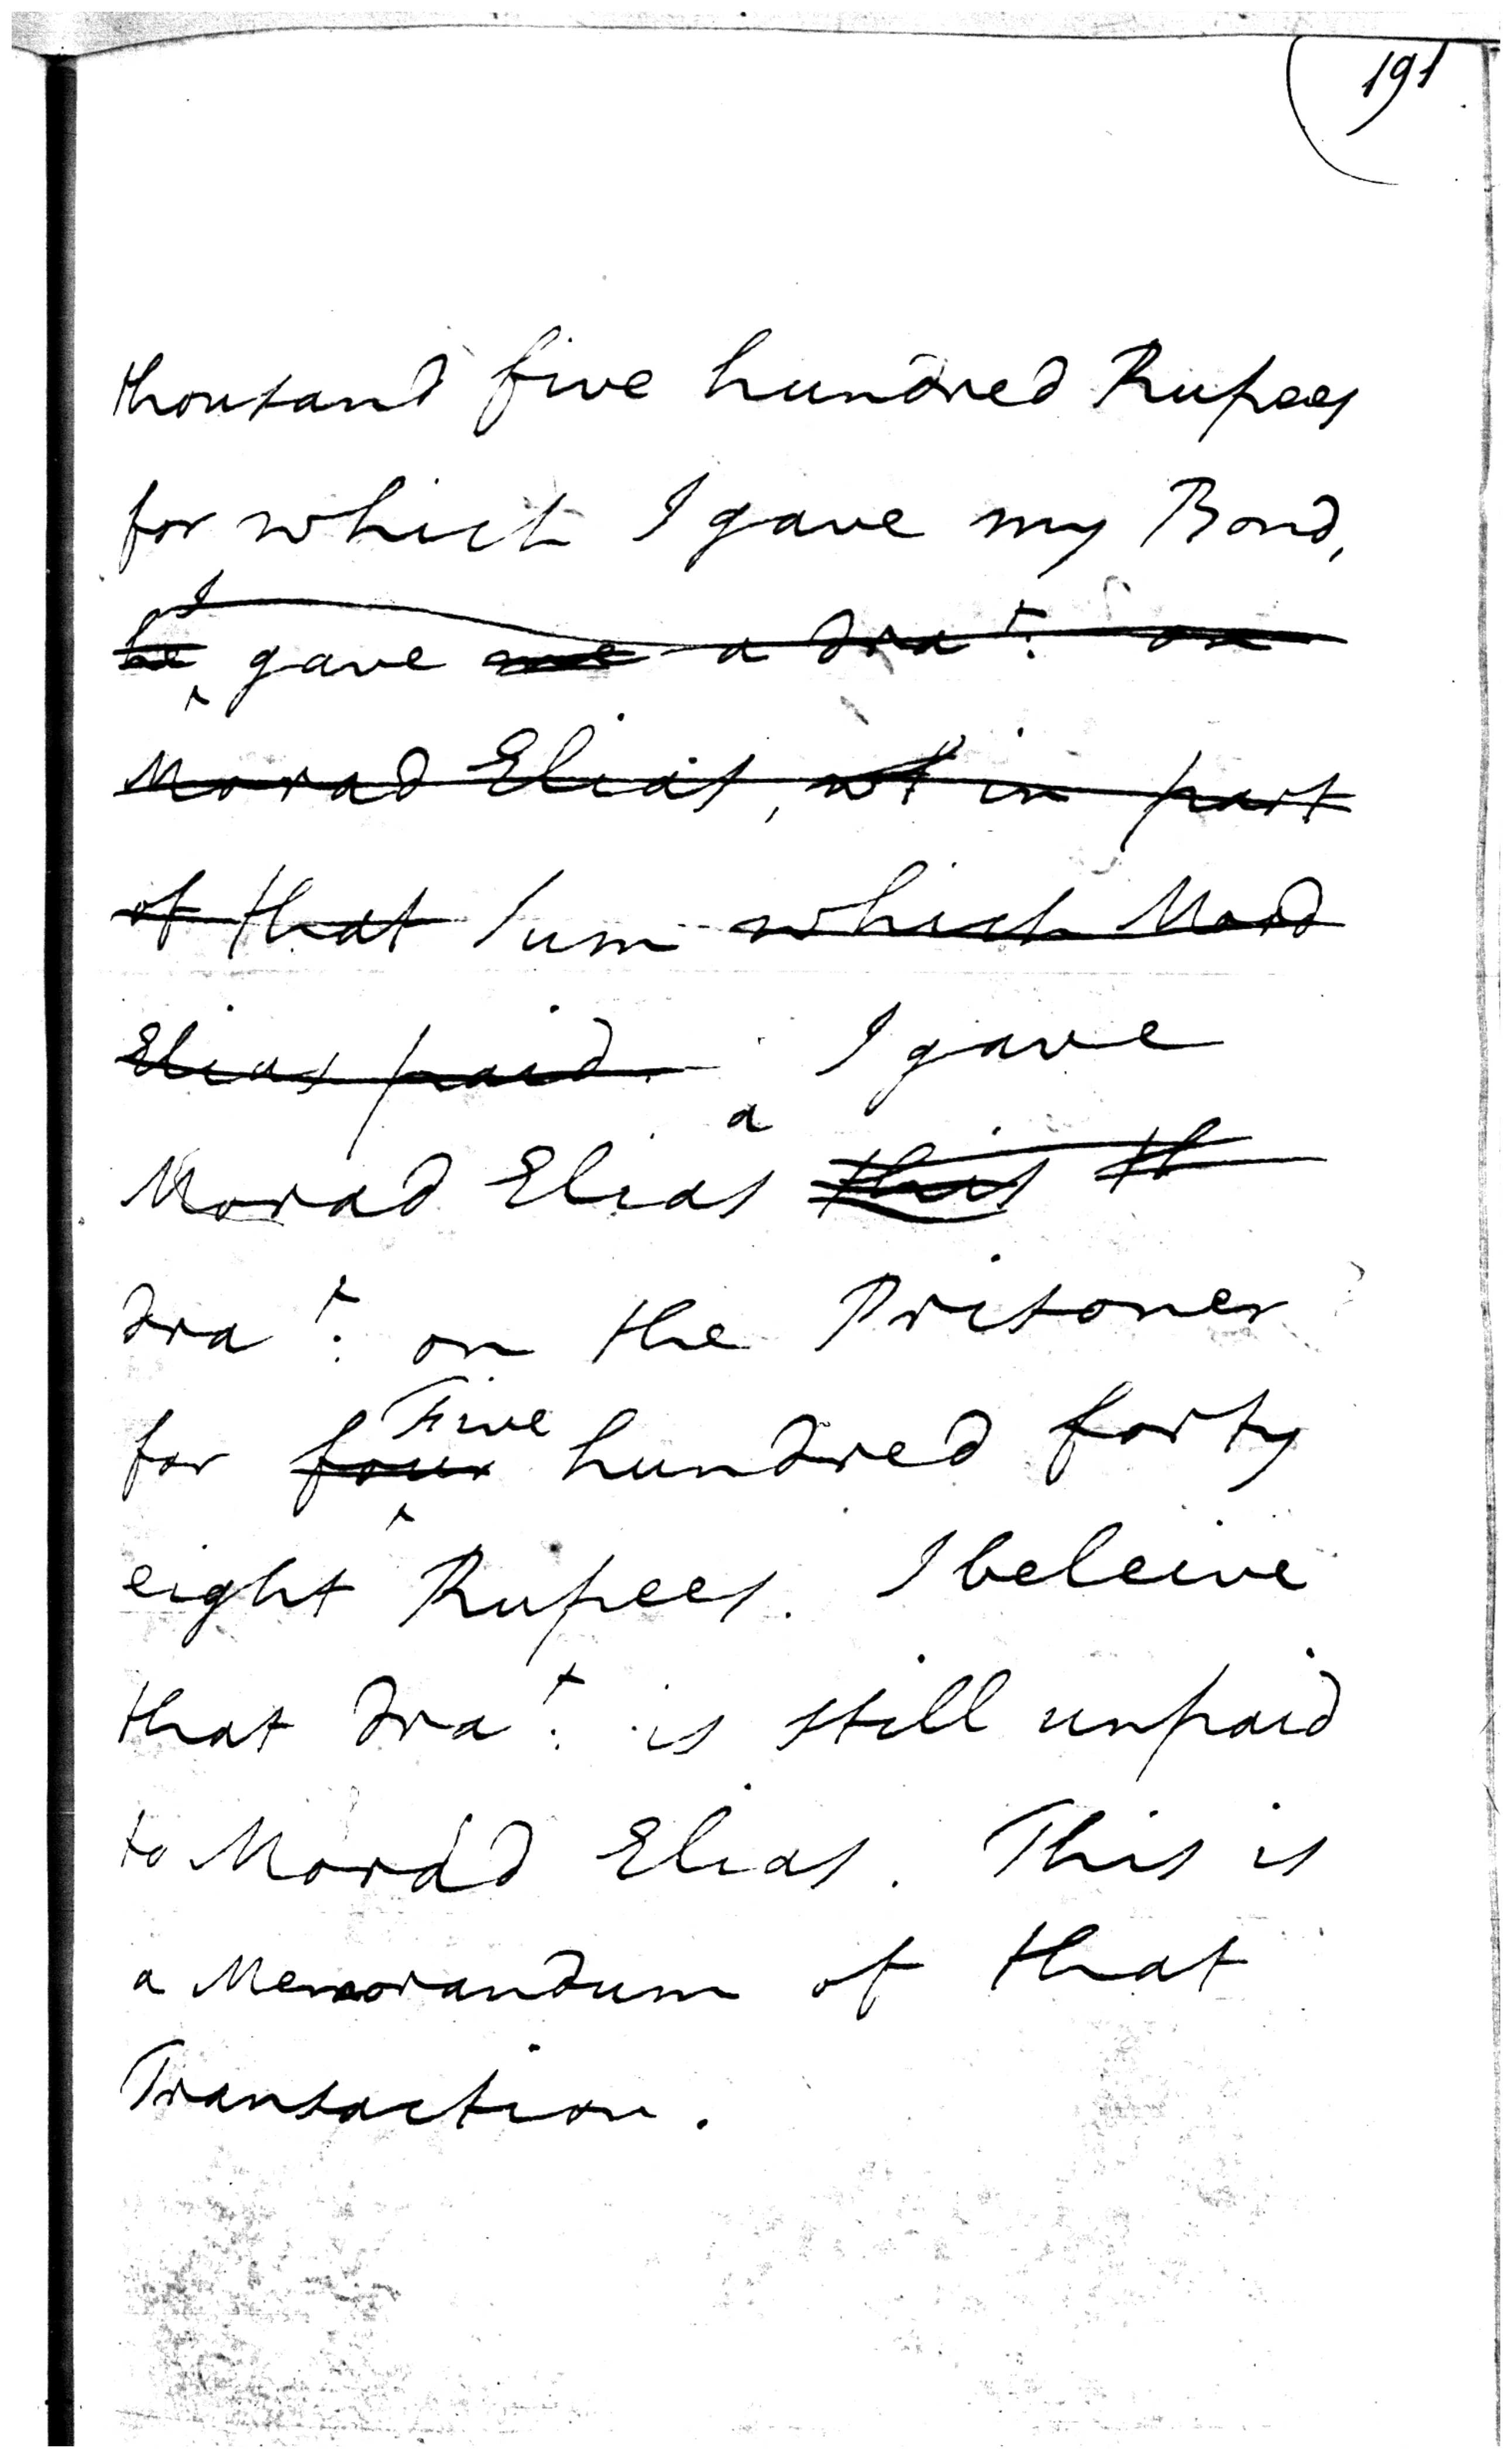 191
thousand five hundred Rupees
for which I gave my Bond,
he I gave me a dra.t on
Morad Elias, in part
of that Sum which Mord
Elias paid. I gave
Morad Elias a this th
dra.t on the Prisoner
for four Five hundred forty
eight Rupees. I beleive
that dra.t is still unpaid
to Morad Elias. This is
a Memorandum of that
Transaction.